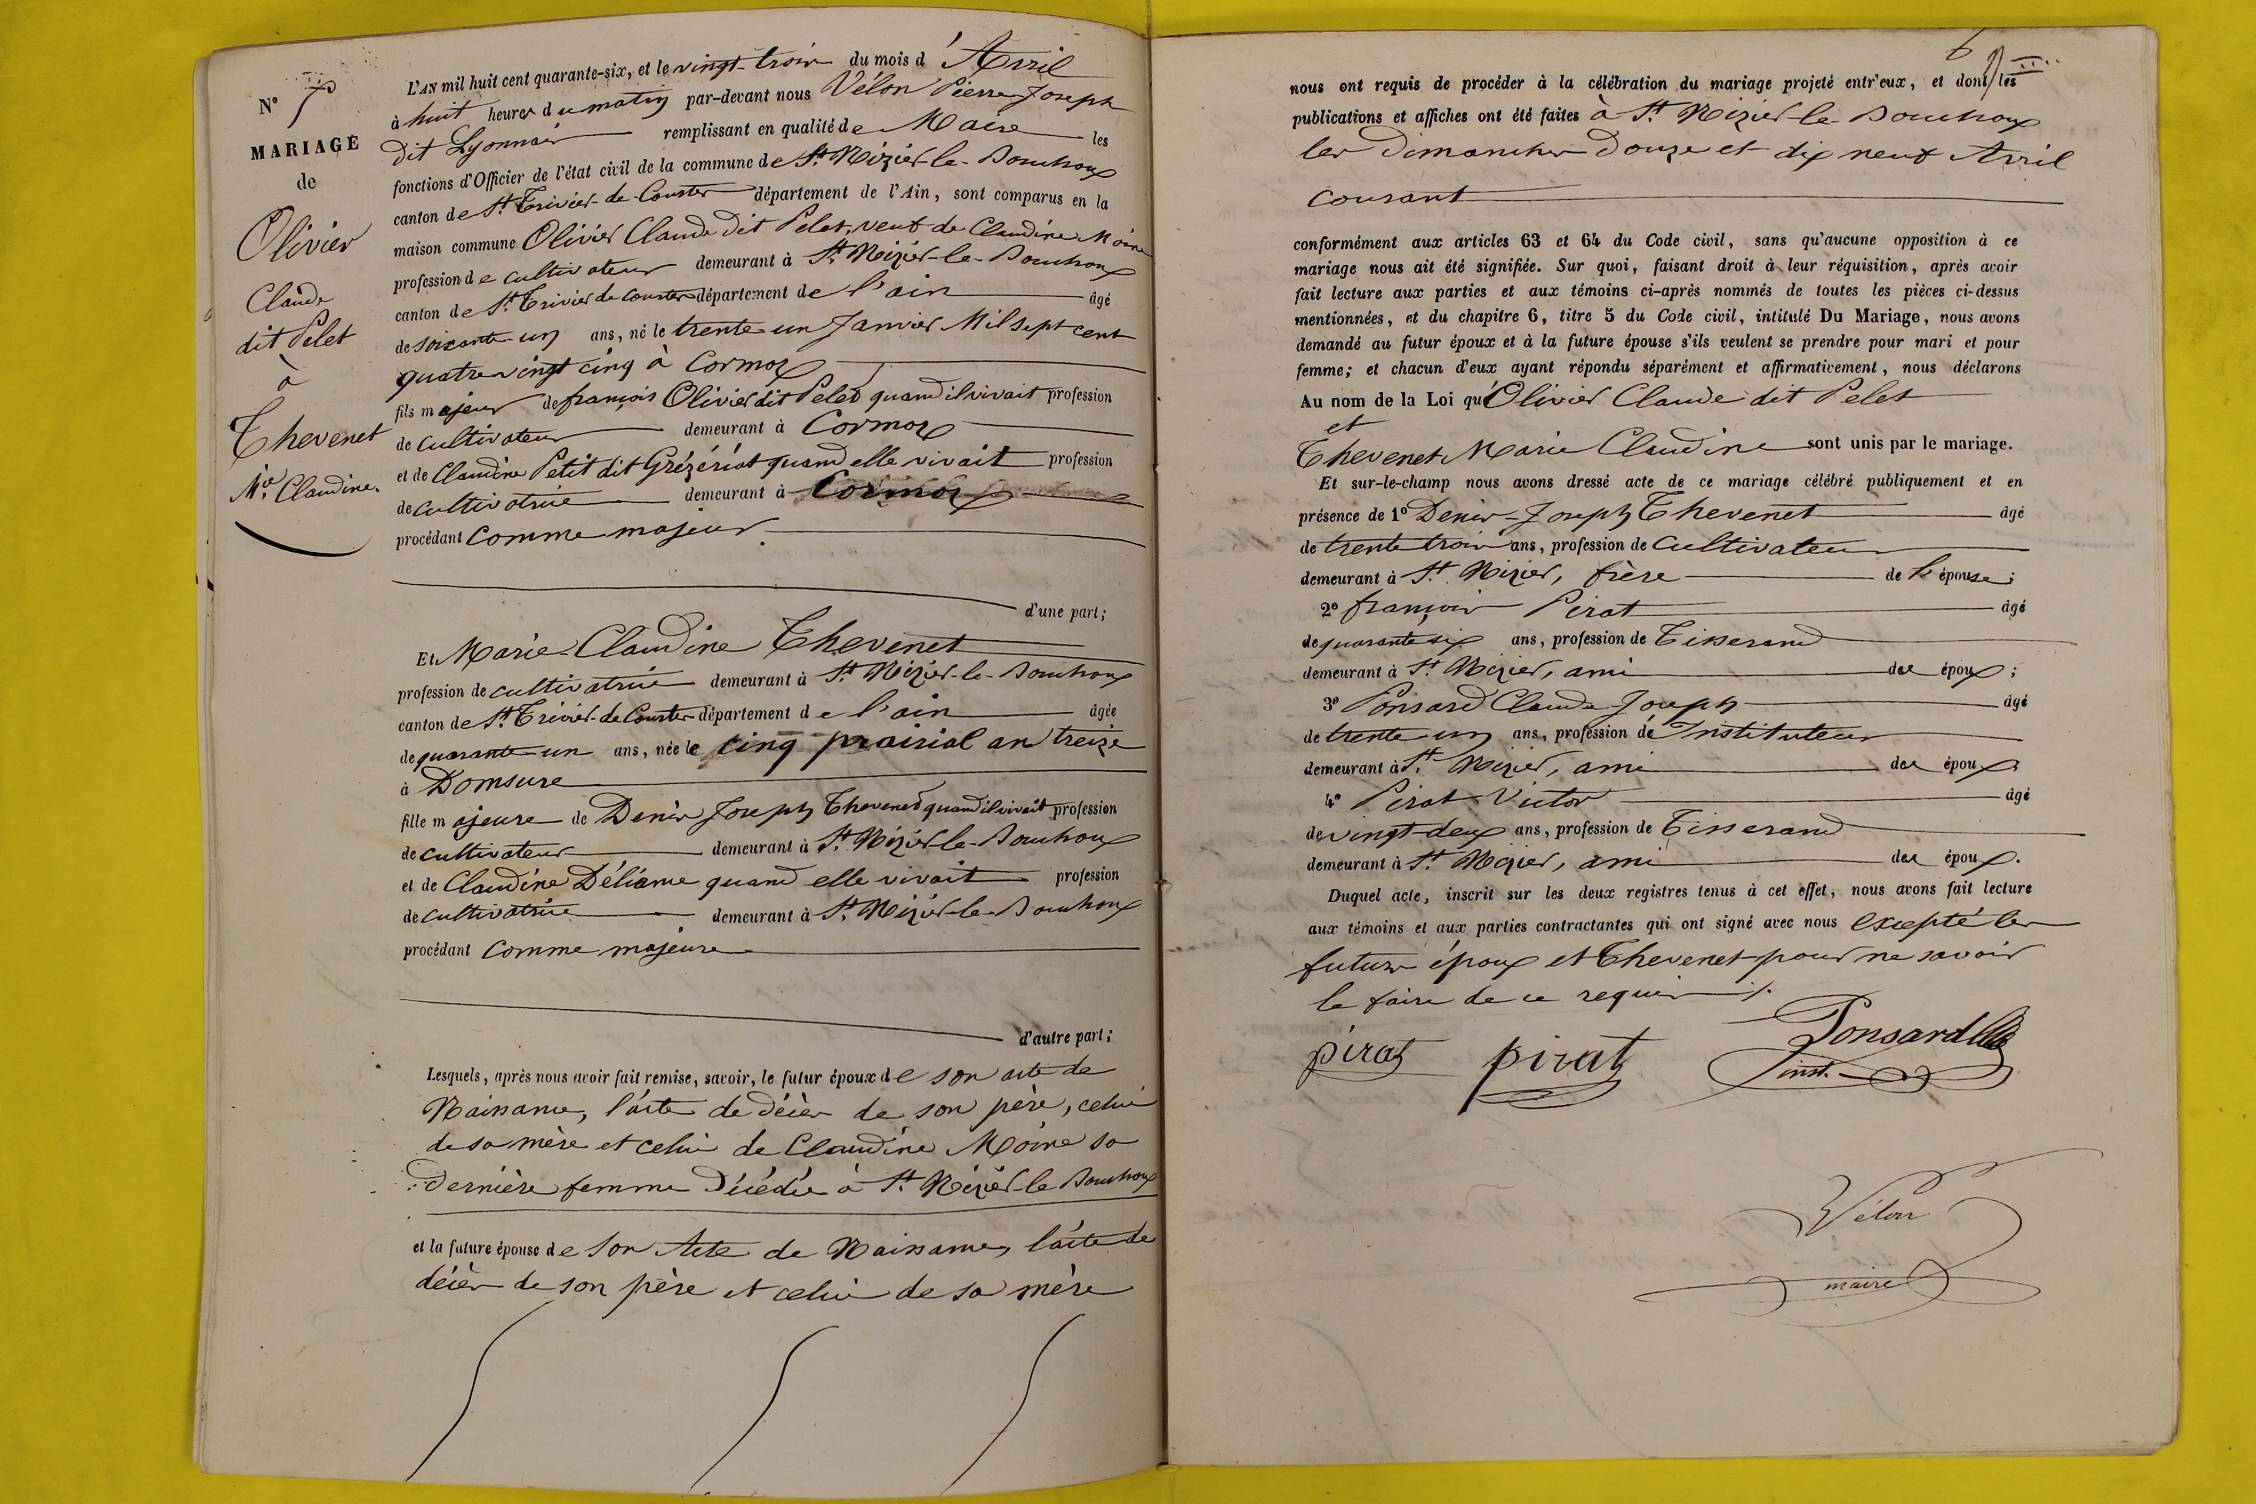 N° 7
MARIAGE
de
Olivier
Claude
dit Pelet
à
Thevenet
M.ie Claudine.
L'AN mil huit cent quarante-six, et le vingt-trois du mois d'Avril
à huit heures du matin par-devant nous Vélon Pierre Joseph
dit Lyonnais remplissant en qualité de Maire les
fonctions d'Officier de l'état civil de la commune de St. Nizier-le-Bouchoux
canton de St. Trivier-de-Courtes département de l'Ain, sont comparus en la
maison commune Olivier Claude dit Pelet, veuf de Claudine Moine
profession de cultivateur demeurant à St. Nizier-le-Bouchoux
canton de St. Trivier de Courtes département de l'ain âgé
de soixante-un ans, né le trente-un Janvier Mil sept cent
quatre vingt cinq à Cormoz
fils majeur de françois Olivier dit Pelet quand il vivait profession
de cultivateur demeurant à Cormoz
et de Claudine Petit dit Grézériat quand elle vivait profession
de cultivatrice demeurant à Cormoz
procédant comme majeur
d'une part;
Et Marie-Claudine Thevenet
profession de cultivatrice demeurant à St. Nizier-le-Bouchoux
canton de St. Trivier-de-Courtes département de l'ain âgée
de quarante-un ans, née le cinq prairial an treize
à Domsure
fille majeure de Denis Joseph Thevenet quand il vivait profession
de cultivateur demeurant à St. Nizier-le-Bouchoux
et de Claudine Déliance quand elle vivait profession
de cultivatrice demeurant à St. Nizier-le-Bouchoux
procédant comme majeure
d'autre part;
Lesquels, après nous avoir fait remise, savoir, le futur époux de son acte de
Naissance, l'acte de décès de son père, celui
de sa mère et celui de Claudine Moine sa
dernière femme décédée à St. Nizier-le Bouchoux
et la future épouse de son Acte de Naissance, l'acte de
décès de son père et celui de sa mère
6
nous ont requis de procéder à la célébration du mariage projeté entr'eux, et dont les
publications et affiches ont été faites à St. Nizier-le-Bouchoux
les Dimanches Douze et dix neuf Avril
courant
conformément aux articles 63 et 64 du Code civil, sans qu'aucune opposition à ce
mariage nous ait été signifiée. Sur quoi, faisant droit à leur réquisition, après avoir
fait lecture aux parties et aux témoins ci-après nommés de toutes les pièces ci-dessus
mentionnées, et du chapitre 6, titre 5 du Code civil, intitulé Du Mariage, nous avons
demandé au futur époux et à la future épouse s'ils veulent se prendre pour mari et pour
femme; et chacun d'eux ayant répondu séparément et affirmativement, nous déclarons
Au nom de la Loi qu'Olivier Claude dit Pelet
et
Thevenet Marie Claudine sont unis par le mariage.
Et sur-le-champ nous avons dressé acte de ce mariage célébré publiquement et en
présence de 1° Denis-Joseph Thevenet âgé
de trente trois ans, profession de Cultivateur
demeurant à St. Nizier, frère de l'épouse;
2° françois Pirat âgé
de quarante six ans, profession de Tisserand
demeurant à St. Nizier, ami des époux;
3° Ponsard Claude Joseph âgé
de trente-un ans, profession de Instituteur
demeurant à St. Nizier, ami des époux
4° Pirat Victor âgé
de vingt-deux ans, profession de Tisserand
demeurant à St. Nizier, ami des époux.
Duquel acte, inscrit sur les deux registres tenus à cet effet, nous avons fait lecture
aux témoins et aux parties contractantes qui ont signé avec nous excepté les
futurs époux et Thevenet pour ne savoir
le faire de ce requis ./.
pirat pirat Ponsard
inst.
Vélon
maire